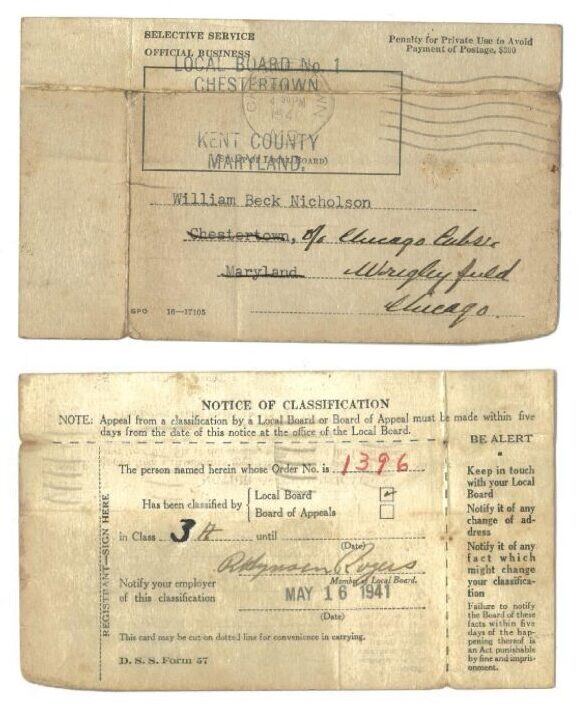 SELECTIVE SERVICE
OFFICIAL BUSINESS
Penalty for Private Use to Avoid
Payment of Postage, $300
LOCAL BOARD No 1
CHESTERTOWN
4 PM
194
KENT COUNTY
MARYLAND.
(STAMP OF LOCAL BOARD)
William Beck Nicholson
Chestertown, c/o Chicago Cubs
Maryland Wrigley field
Chicago.
GPO 16—17105
NOTICE OF CLASSIFICATION
NOTE: Appeal from a classification by a Local Board or Board of Appeal must be made within five
days from the date of this notice at the office of the Local Board.
The person named herein whose Order No. is 1396
Has been classified by
Local Board ✓
Board of Appeals
in Class 3 A until
(Date)
Rogers
Member of Local Board.
Notify your employer
of this classification
MAY 16 1941
(Date)
This card may be cut on dotted line for convenience in carrying.
D. S. S. Form 57
REGISTRANT—SIGN HERE
BE ALERT
Keep in touch
with your Local
Board
Notify it of any
change of ad-
dress
Notify it of any
fact which
might change
your classifica-
tion
Failure to notify
the Board of these
facts within five
days of the hap-
pening thereof is
an Act punishable
by fine and impris-
onment.